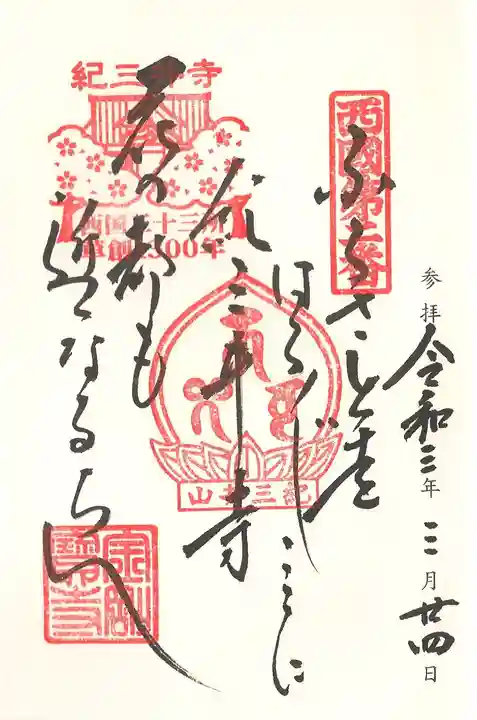 参拝 令和三年三月廿四日
西國第二番
ふるさとを
はるばるここに
紀三井寺
花の都も
近くなるらん
紀三井寺
西国三十三所
草創1300年
紀三井山
金剛寶寺